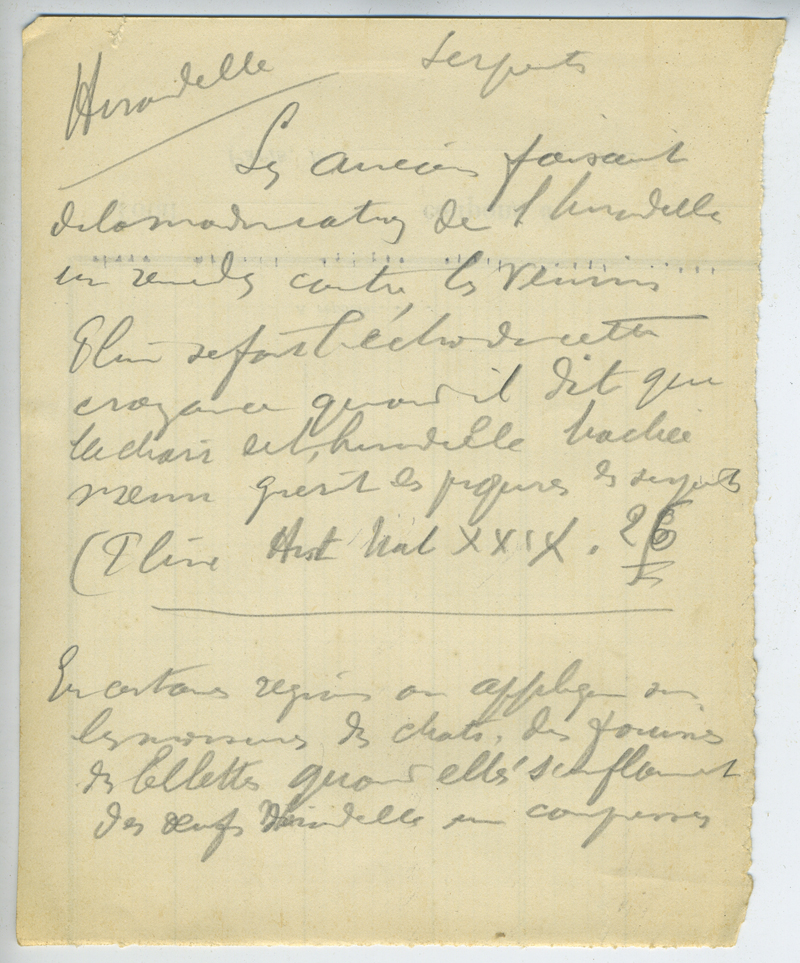 Hirondelle Serpents
Les anciens faisaient
de la manducation de l'hirondelle
un remède contre les venins
Pline se fait l'écho de cette
croyance quand il dit que
la chair hirondelle hachée
menu guérit les piqures des serpents
(Pline Hist Nat XXIX. 26
En certaines régions on applique sur
les morsures des chats, des fouines
des belettes quand elles s'enflamment
des œufs d'hirondelle en compresses